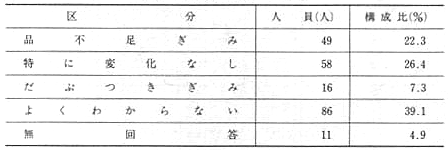 区分 人員(人) 構成比(%)
品不足ぎみ 49 22.3
特に変化なし 58 26.4
だぶつきぎみ 16 7.3
よくわからない 86 39.1
無回答 11 4.9